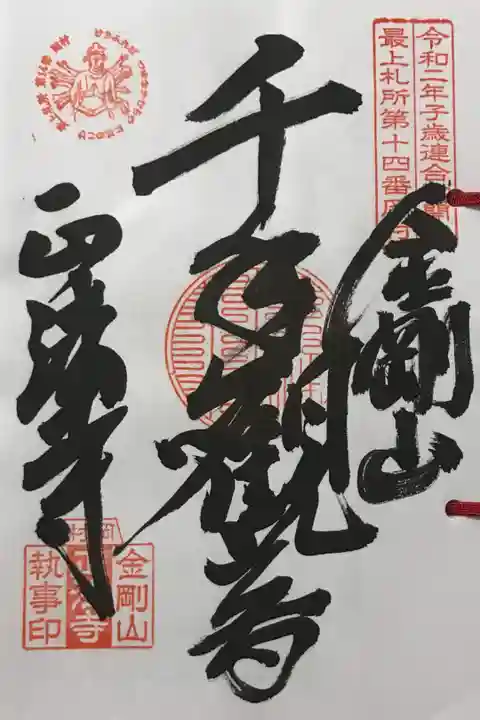 令和二年子歳連合
最上札所第十四番
金剛山
千手観音
正法寺
岡村
金剛山
正法寺
執事印